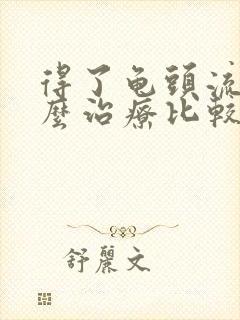 得了龟頭流
麼治療比較
舒麗文